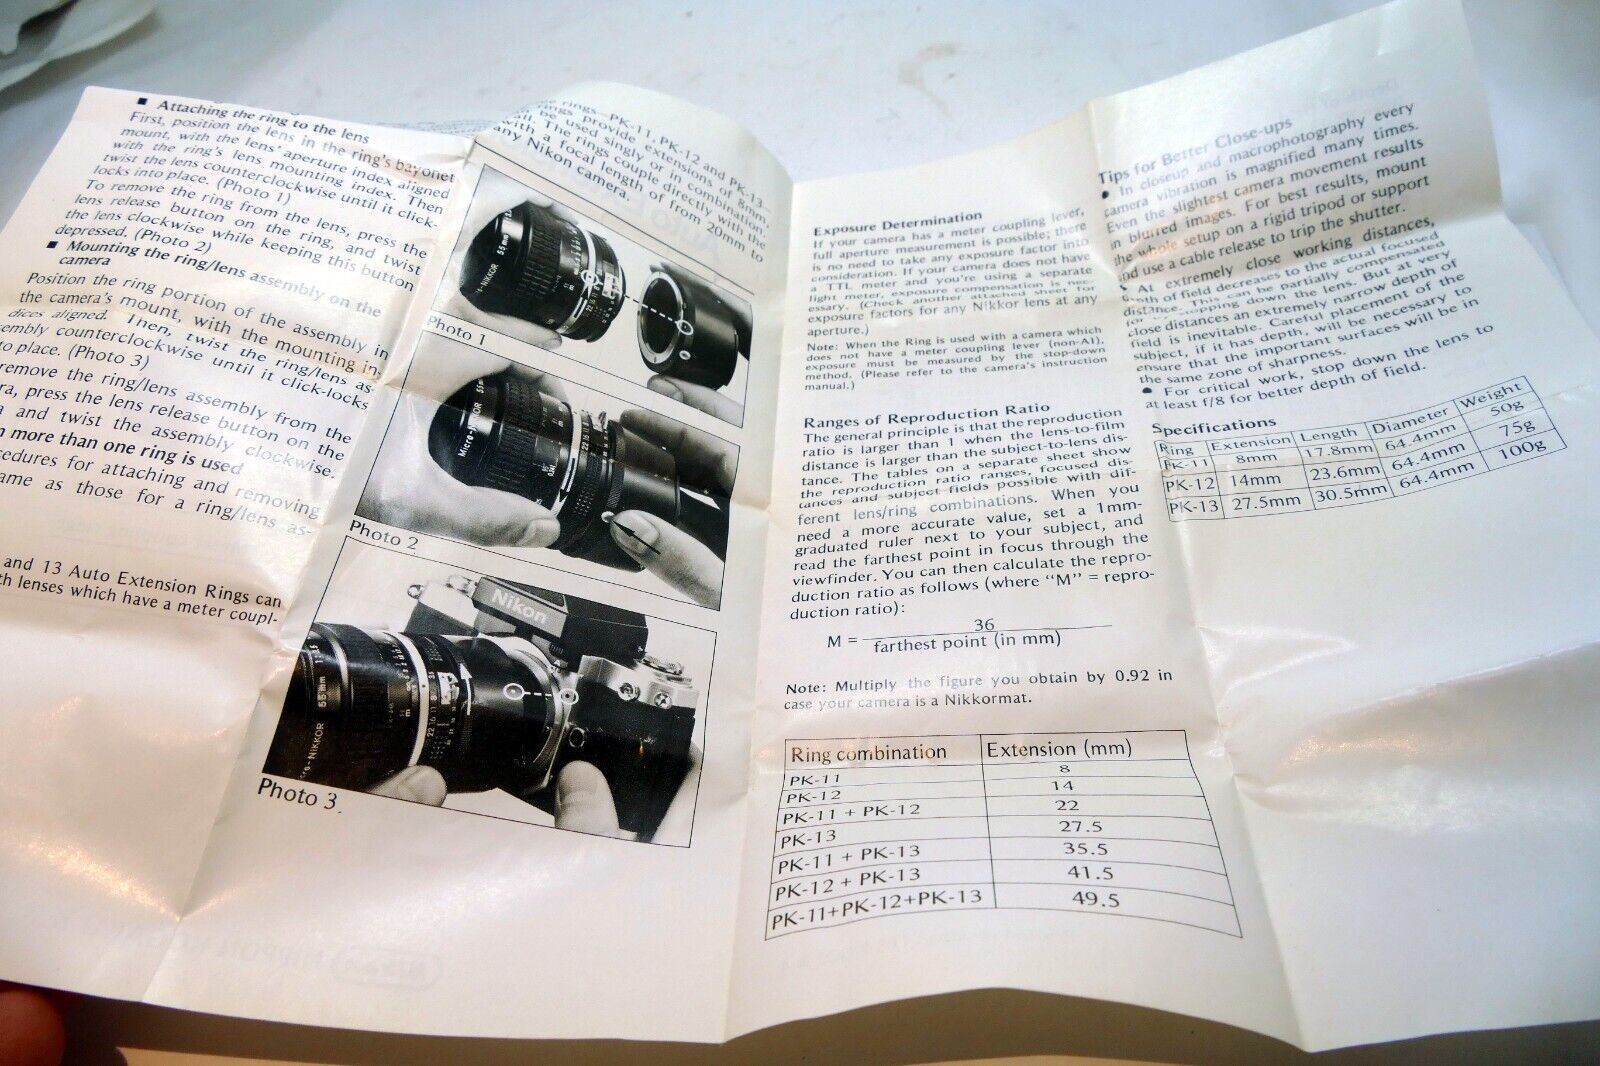 ■ Attaching the ring to the lens
First, position the lens in the ring's bayonet
mount, with the lens' aperture index aligned
with the ring's lens mounting index. Then
twist the lens counterclockwise until it click-
locks into place. (Photo 1)
To remove the ring from the lens, press the
lens release button on the ring, and twist
the lens clockwise while keeping this button
depressed. (Photo 2)
■ Mounting the ring/lens assembly on the
camera
Position the ring portion of the assembly in
the camera's mount, with the mounting in-
dices aligned. Then, twist the ring/lens as-
sembly counterclockwise until it click-locks
to place. (Photo 3)
remove the ring/lens assembly from the
ra, press the lens release button on the
and twist the assembly clockwise.
more than one ring is used
cedures for attaching and removing
ame as those for a ring/lens as-
and 13 Auto Extension Rings can
th lenses which have a meter coupl-
rings PK-11, PK-12 and PK-13
rings provide extensions of 8mm,
be used singly or in combination.
all. The rings couple directly with the
with a focal length of from 20mm to
any Nikon camera.
NIKKOR 55mm
Photo 1
Micro-NIKKOR 55mm
Photo 2
Nikon
NIKKOR 55mm
Photo 3
Exposure Determination
If your camera has a meter coupling lever,
full aperture measurement is possible; there
is no need to take any exposure factor into
consideration. If your camera does not have
a TTL meter and you're using a separate
light meter, exposure compensation is nec-
essary. (Check another attached sheet for
exposure factors for any Nikkor lens at any
aperture.)
Note: When the Ring is used with a camera which
does not have a meter coupling lever (non-AI),
exposure must be measured by the stop-down
method. (Please refer to the camera's instruction
manual.)
Ranges of Reproduction Ratio
The general principle is that the reproduction
ratio is larger than 1 when the lens-to-film
distance is larger than the subject-to-lens dis-
tance. The tables on a separate sheet show
the reproduction ratio ranges, focused dis-
tances and subject fields possible with dif-
ferent lens/ring combinations. When you
need a more accurate value, set a 1mm-
graduated ruler next to your subject, and
read the farthest point in focus through the
viewfinder. You can then calculate the repro-
duction ratio as follows (where "M" = repro-
duction ratio):
36
M =
farthest point (in mm)
Note: Multiply the figure you obtain by 0.92 in
case your camera is a Nikkormat.
Ring combination Extension (mm)
PK-11 8
PK-12 14
PK-11 + PK-12 22
PK-13 27.5
PK-11 + PK-13 35.5
PK-12 + PK-13 41.5
PK-11+PK-12+PK-13 49.5
Tips for Better Close-ups
● In closeup and macrophotography every
camera vibration is magnified many times.
Even the slightest camera movement results
in blurred images. For best results, mount
the whole setup on a rigid tripod or support
and use a cable release to trip the shutter.
At extremely close working distances,
depth of field decreases to the actual focused
distance. This can be partially compensated
for stopping down the lens. But at very
close distances an extremely narrow depth of
field is inevitable. Careful placement of the
subject, if it has depth, will be necessary to
ensure that the important surfaces will be in
the same zone of sharpness.
● For critical work, stop down the lens to
at least f/8 for better depth of field.
Specifications
Ring Extension Length Diameter Weight
PK-11 8mm 17.8mm 64.4mm 50g
PK-12 14mm 23.6mm 64.4mm 75g
PK-13 27.5mm 30.5mm 64.4mm 100g